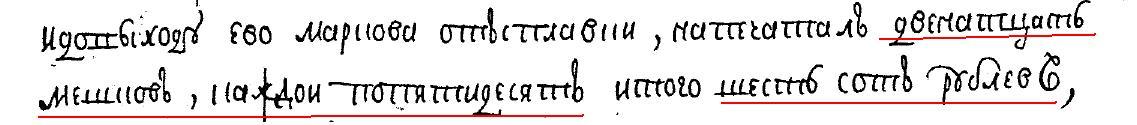 идовыходу ево маркова отъставки, напечаталъ двенатцать
мешковъ, каждои попятидесятъ итого шесть сотъ рублевъ,